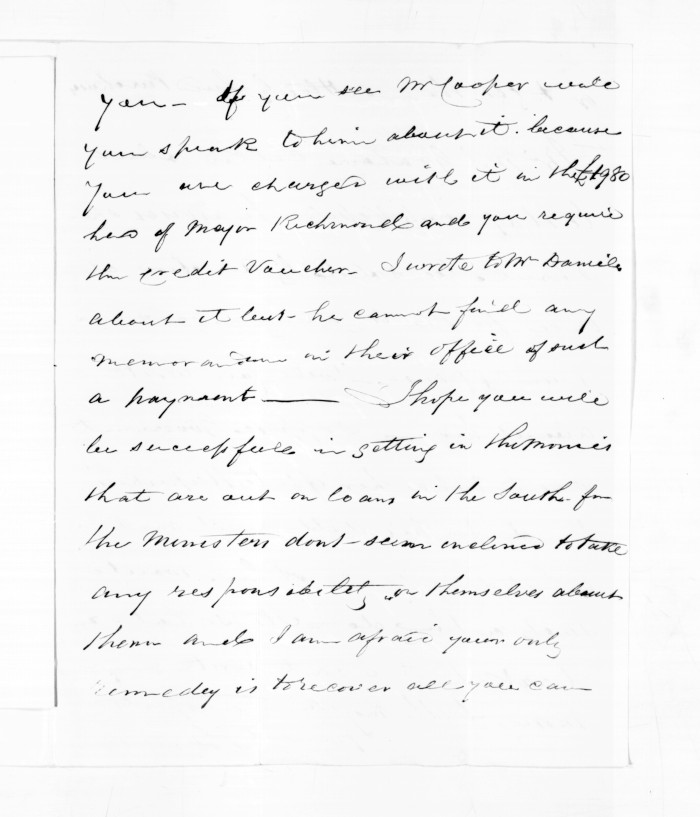 you - If you see Mr Cooper will
you speak to him about it. because
you are charged with it in the
of Major Richmond and you require
the credit Voucher - I wrote to Mr Daniell
about it but he cannot find any
memorandum in their office of such
a payment — I hope you will
be successfull in getting in the Monies
that are out on loans in the South - for
the Ministers dont seem inclined to take
any responsibility on themselves about
them and I am afraid your only
remedey is to recover all you can